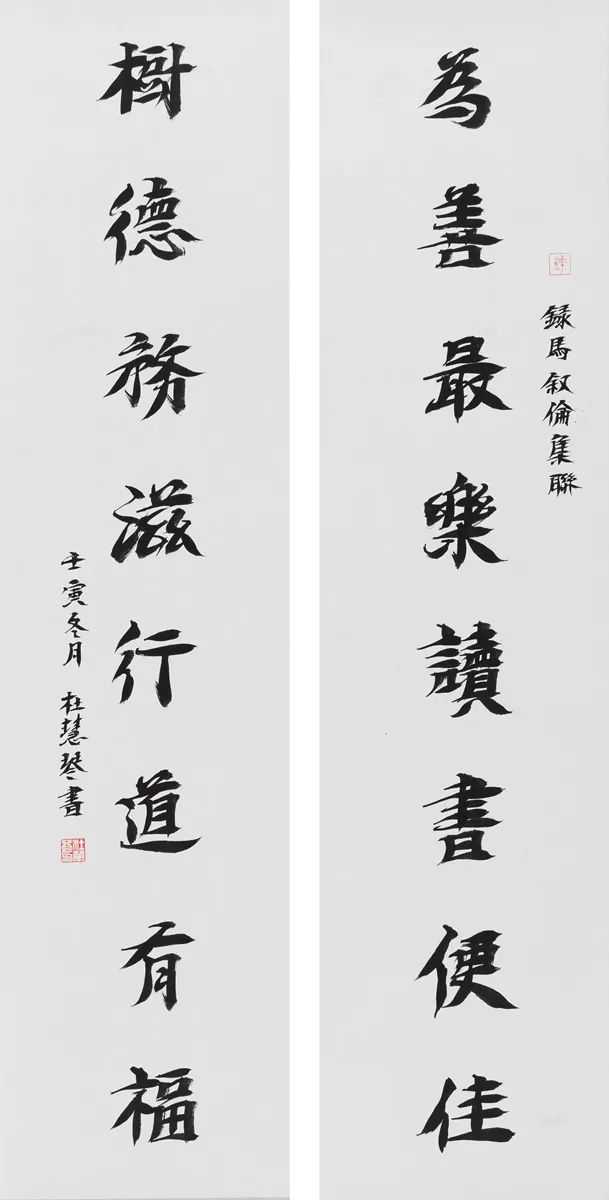 録馬叙倫集聯
為善最樂讀書便佳
樹德務滋行道有福
壬寅冬月 杜慧琴書